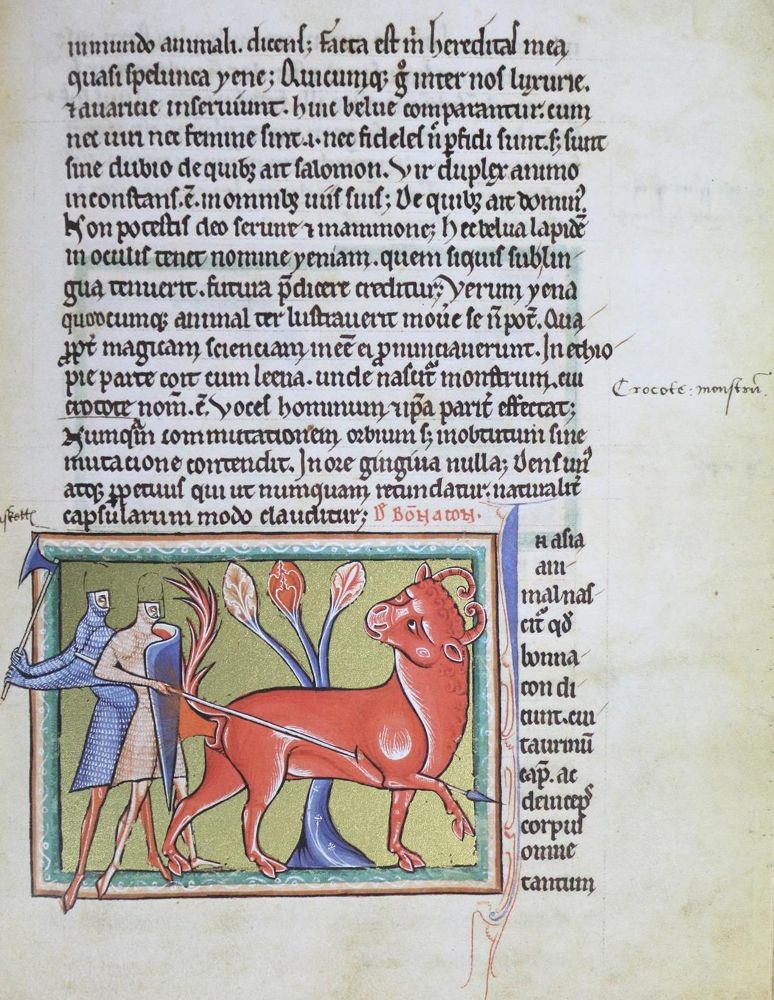 inmundo animali. dicens; facta est m̄ hereditas mea
quasi spelunca yene; Quicumq; g̊ inter nos luxurie.
⁊ auaricie inseruiunt. huic belue comparantur. cum
nec uiri nec femine sint .i. nec fideles n̄ ꝑfidi sunt. s; sunt
sine dubio de quibꝫ ait salomon. Vir duplex animo
inconstans .ē. in omnibꝫ uiis suis; De quibꝫ ait domin᷒.
Non potestis deo seruire ⁊ mammone; hec belua lapidē
in oculis tenet nomine yeniam. quem siquis sub lin
gua tenuerit. futura p̄dicere creditur; Verum yena
quodcumq; animal ter lustrauerit mouˀe se n̄ pot̄. Qua
ꝓpt̄ magicam scienciam inēē ei ꝓnunciauerunt. In ethio
pie parte coit cum leena. unde nascit᷑ monstrum. cui
crocote nom̄ .ē. Voces hominum ⁊ ip̄a parit̄ effectat;
Numqm̄ commutationem orbium s; in obtutum sine
mutacione contendit. In ore gingiua nulla; Dens un᷒
atq; ꝑpetuus qui ut numquam retundatur. naturalit̄
capsularum modo clauditur; D̄ BOÑACON.
Crocote: monstrū.
N asia
ani
mal nas
cit᷑ qđ
bonna
con di
cunt. cui
taurinū
cap̄. ac
deincep̄s
corpus
omne
tantum